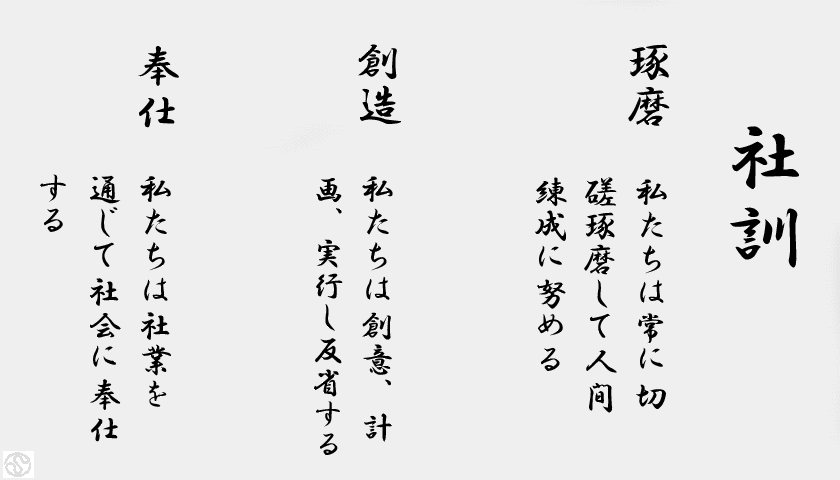 社訓
琢磨
私たちは常に切
磋琢磨して人间
練成に努める
創造
私たちは創意、計
画、実行し反省する
奉仕
私たちは社業を
通じて社会に奉仕
する